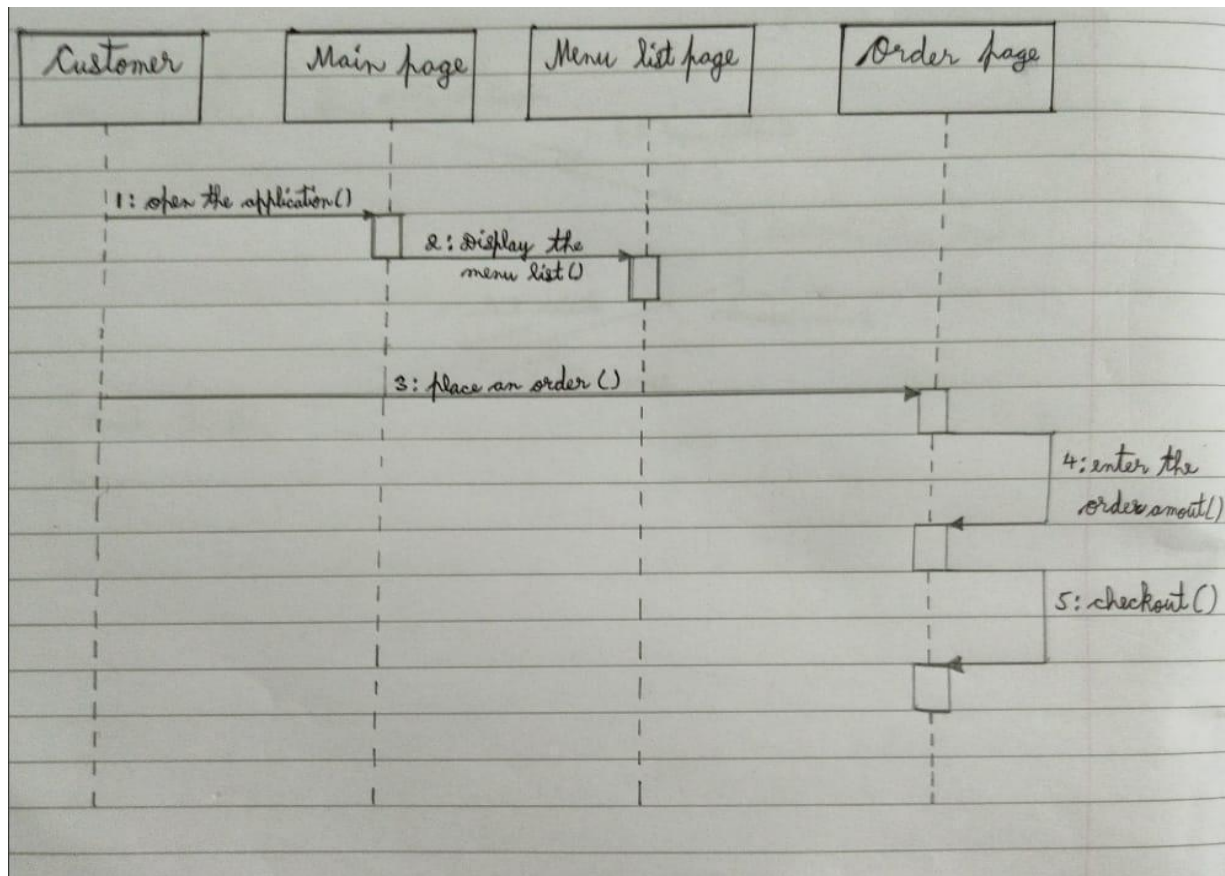 Customer
Main page
Menu list page
Order page
1: open the application()
2: Display the
menu list()
3: place an order ()
4: enter the
order amout()
5: checkout ()